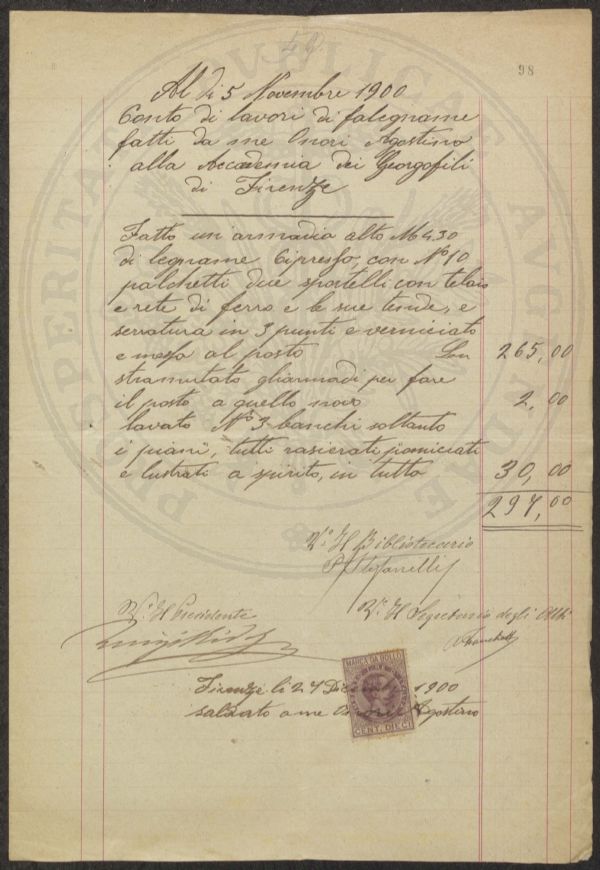 98
Al dì 5 Novembre 1900
Conto di lavori di falegname
fatti da me Onori Agostino
alla Accademia dei Georgofili
di Firenze
Fatto un'armadia alto M 4.30
di legname Cipresso, con No 10
palchetti due sportelli con telaio
e rete di ferro e le sue tende, e
serratura in 3 punti e verniciato
e messa al posto 265,00
stramutato gliarmadi per fare
il posto a quello novo 2,00
lavato No 3 banchi soltanto
i piani, tutti rasierati pomiciati
e lustrati a spirito, in tutto 30,00
297,00
Vo Il Bibliotecario
Stefanelli
Vo Il Presidente
Vo Il Segretario degli Atti
MARCA DA BOLLO
CENT. DIECI
Firenze li 27 1900
saldato a me Onori Agostino